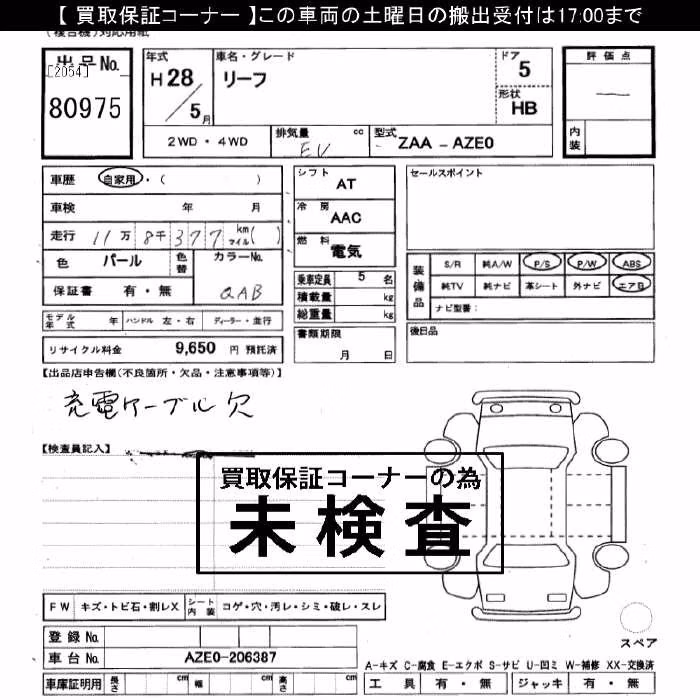 【 買取保証コーナー 】この車両の土曜日の搬出受付は17:00まで
(複合機)対応用紙
出品No.
[2054]
80975
年式
H28/5月
車名・グレード
リーフ
ドア
5
形状
HB
評価点
—
内装
2WD・4WD
排気量 cc
EV
型式
ZAA - AZE0
車歴 自家用・( )
車検 年 月
走行 11万8千377 km マイル( )
色 パール 色替
カラーNo.
QAB
保証書 有・無
モデル年式 年 ハンドル 左・右 ディーラー・並行
リサイクル料金 9,650 円 預託済
シフト
AT
冷房
AAC
燃料
電気
乗車定員 5 名
積載量 kg
総重量 kg
書類期限
月 日
セールスポイント
装備品
S/R 純A/W P/S P/W ABS
純TV 純ナビ 革シート 外ナビ エアB
ナビ型番:
後日品
【出品店申告欄(不良箇所・欠品・注意事項等)】
充電ケーブル欠
【検査員記入】
買取保証コーナーの為
未検査
FW キズ・トビ石・割レX シート内装 コゲ・穴・汚レ・シミ・破レ・スレ
登録No.
車台No. AZE0-206387
車庫証明用 長さ cm 幅 cm 高さ cm
スペア
A-キズ C-腐食 E-エクボ S-サビ U-凹ミ W-補修 XX-交換済
工具 有・無 ジャッキ 有・無